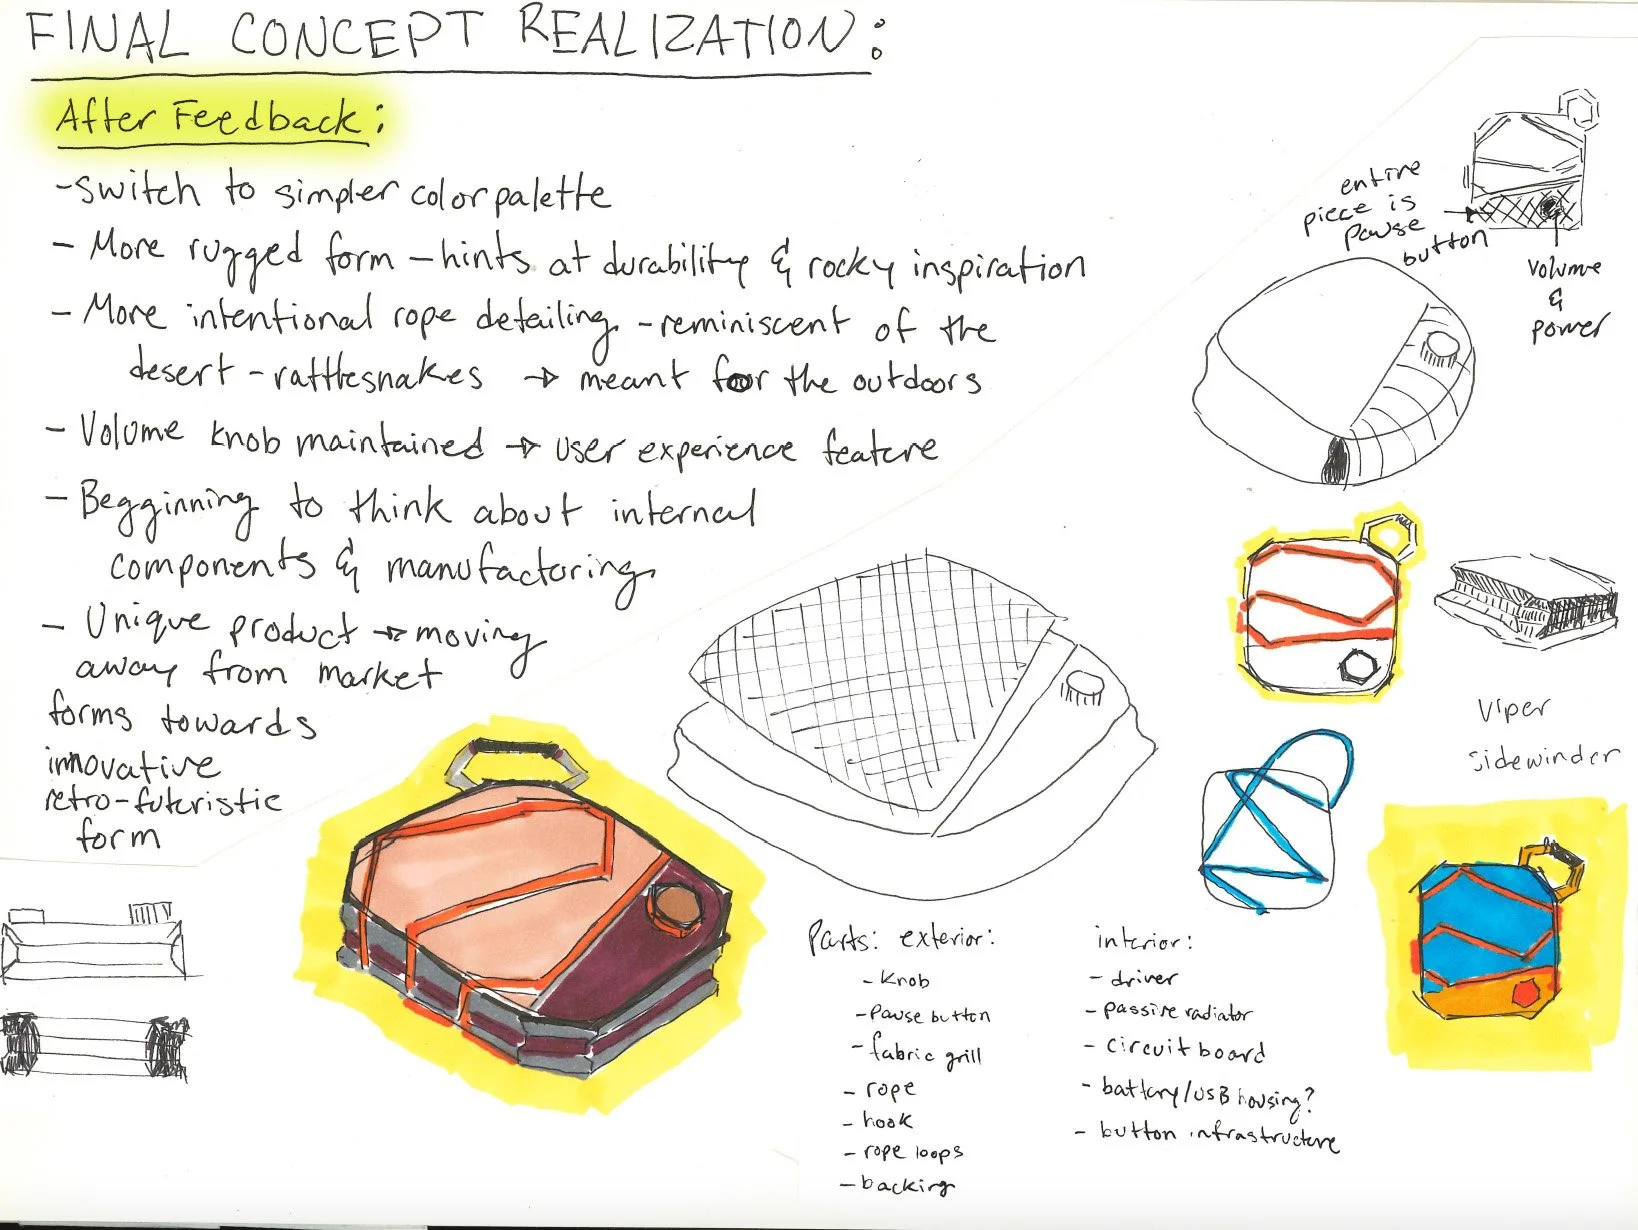 FINAL CONCEPT REALIZATION:
After Feedback:
-switch to simpler color palette
- More rugged form - hints at durability & rocky inspiration
- More intentional rope detailing - reminiscent of the
desert - rattlesnakes → meant for the outdoors
- Volume knob maintained → user experience feature
- Begginning to think about internal
components & manufactoring
- Unique product → moving
away from market
forms towards
innovative
retro-futuristic
form
entire
piece is
pause
button
volume
&
power
viper
sidewinder
Parts: exterior:
- knob
- Pause button
- fabric grill
- rope
- hook
- rope loops
- backing
interior:
- driver
- passive radiator
- circuit board
- battery/USB housing?
- button infrastructure